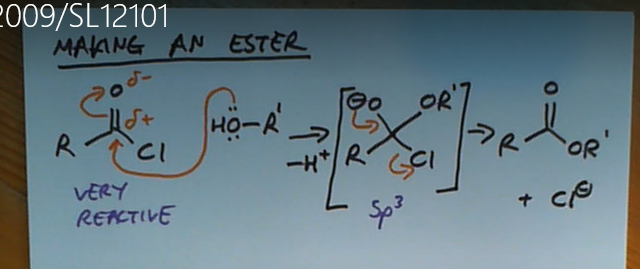 2009/SL12101
MAKING AN ESTER
O δ-
δ+
R Cl
HO-R'
-H+
⊖O OR'
R Cl
O
R OR'
VERY
REACTIVE
Sp³
+ Cl⊖